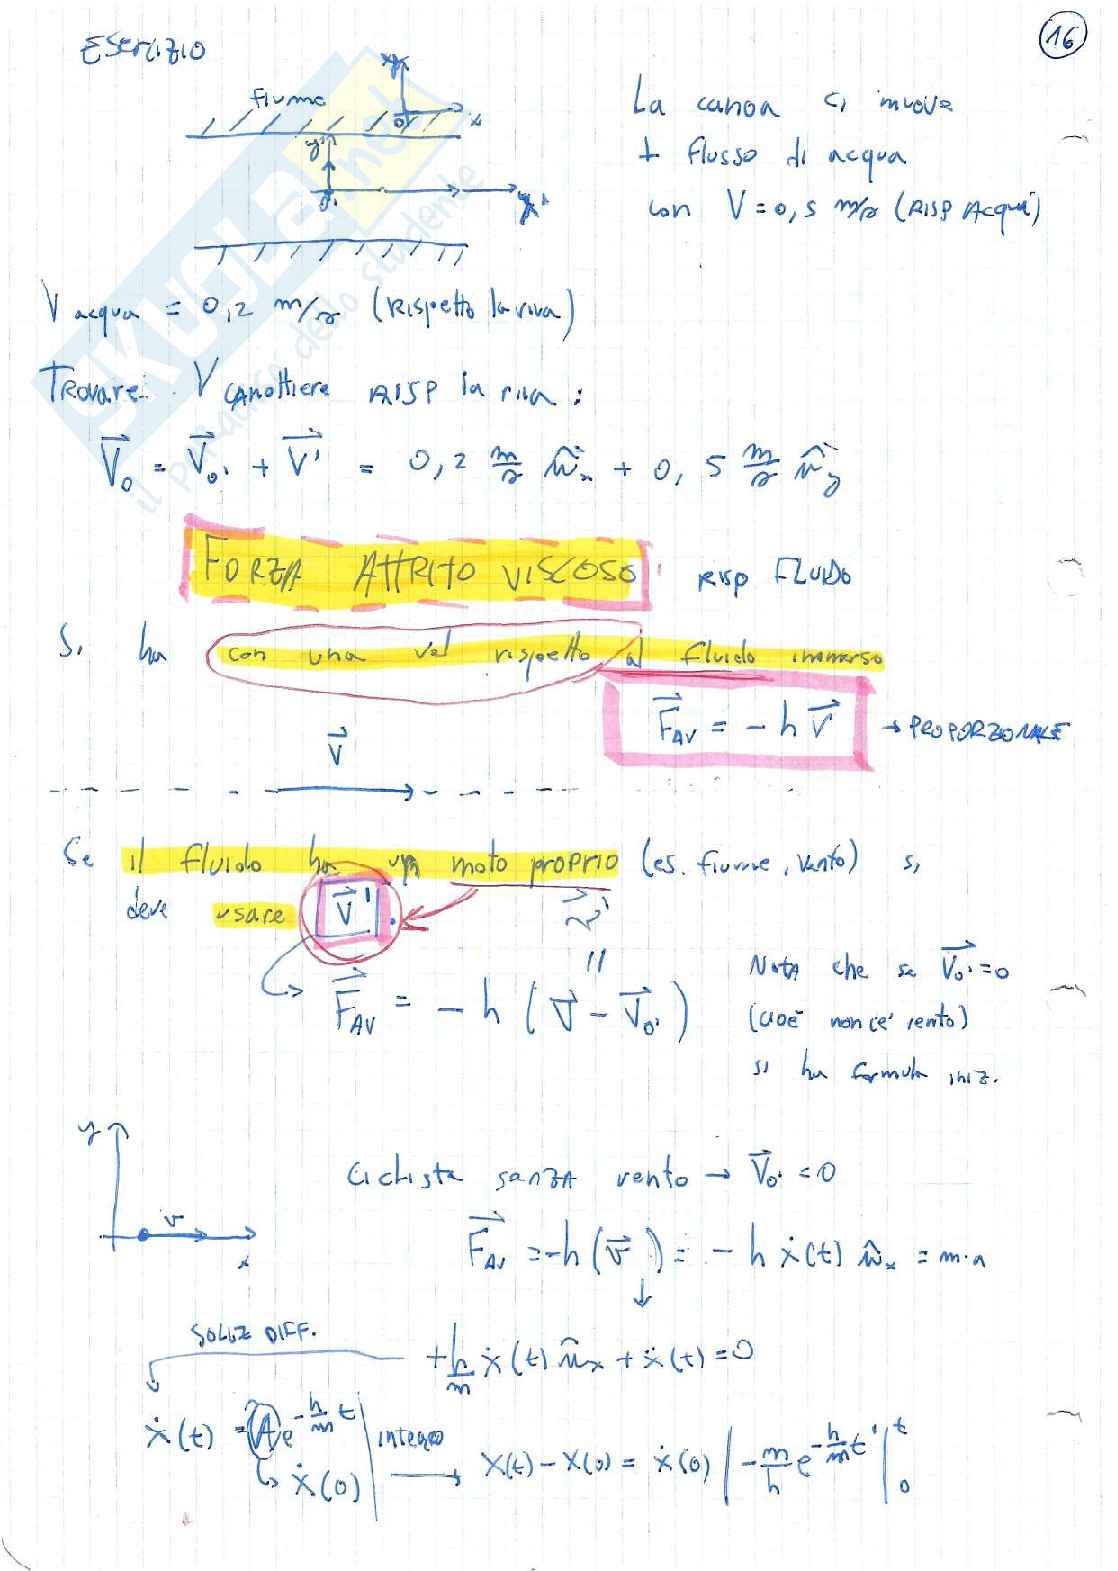 16
Esercizio
fiume
y
x
O
y'
O'
x'
La canoa si muove
⊥ flusso di acqua
con V = 0,5 m/s (RISP Acqua)
V acqua = 0,2 m/s (rispetto la riva)
Trovare: V canottiere RISP la riva:
V⃗o = V⃗o' + V⃗' = 0,2 m/s ûx + 0,5 m/s ûy
FORZA ATTRITO VISCOSO RISP FLUIDO
Si ha con una vel rispetto al fluido immerso
F⃗AV = - h V⃗ → PROPORZONALE
V⃗
Se il fluido ha un moto proprio (es. fiume, vento) si
deve usare V⃗'.
V⃗'
=
F⃗AV = - h (V⃗ - V⃗o')
Nota che se V⃗o' = 0
(cioè non c'è vento)
si ha formula iniz.
y
v
x
Ciclista senza vento → V⃗o' = 0
F⃗AV = -h (V⃗) = - h ẋ(t) ûx = m·a
SOLUZ DIFF.
+ h/m ẋ(t) ûx + ẋ(t) = 0
ẋ(t) = A e^(-h/m t) integro → x(t) - x(0) = ẋ(0) | -m/h e^(-h/m t') |₀ᵗ
ẋ(0)
SKUOLA.net
il paradiso dello studente